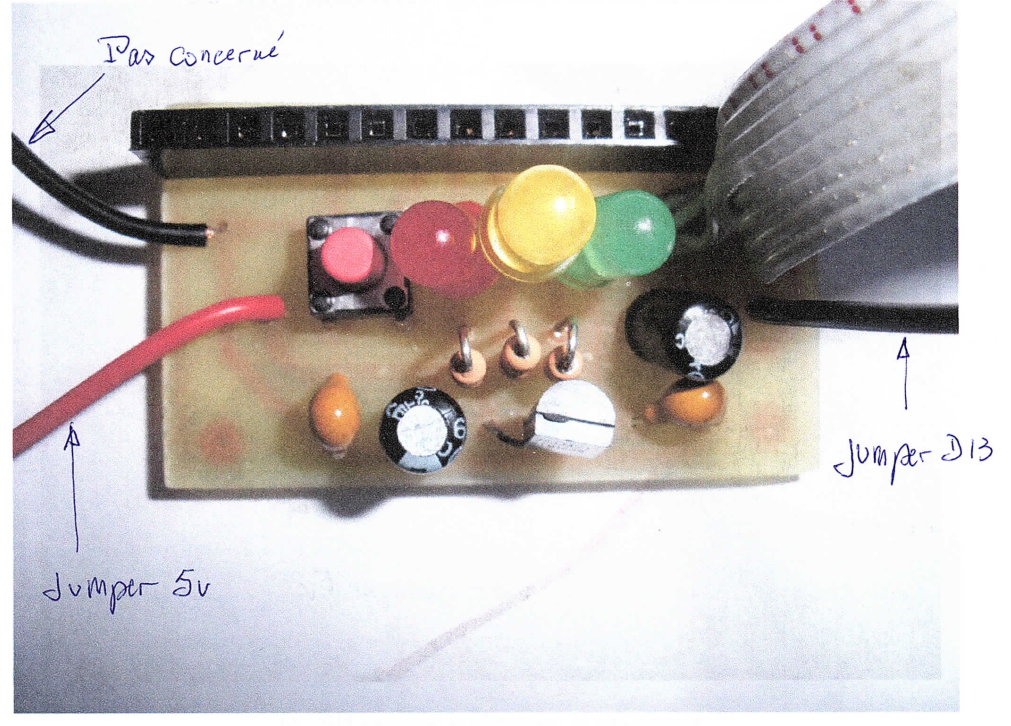 Pas concerné
Jumper D13
Jumper 5v